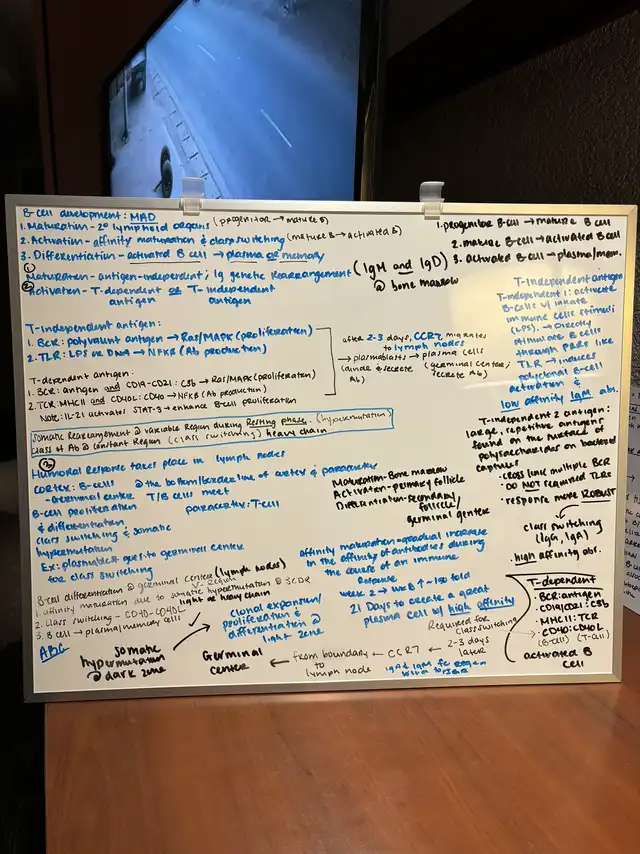 B-cell development: MAD
1. Maturation - 2° lymphoid organs (progenitor → mature B)
2. Activation - affinity maturation & class switching (mature B → activated B)
3. Differentiation - activated B cell → plasma or memory
1. progenitor B-cell → mature B cell
2. mature B-cell → activated B cell
3. activated B-cell → plasma/mem.
① Maturation - antigen-independent; Ig genetic rearrangement (IgM and IgD) @ bone marrow
② Activation - T-dependent or T-independent
antigen antigen
T-independent antigen:
1. BCR: polyvalent antigen → Ras/MAPK (proliferation)
2. TLR: LPS or DNA → NFKB (Ab production)
after 2-3 days, CCR7 migrates
to lymph nodes
→ plasmablasts → plasma cells
(divide & secrete (germinal center;
Ab) secrete Ab)
T-dependent antigen:
1. BCR: antigen and CD19-CD21: C3b → Ras/MAPK (proliferation)
2. TCR: MHCII and CD40L: CD40 → NFKB (Ab production)
Note: IL-21 activates STAT-3 → enhance B-cell proliferation
Somatic Rearrangement @ variable Region during Resting phase. (hypermutation)
Class of Ab @ constant Region (class switching) heavy chain
③
Humoral Response takes place in lymph nodes
cortex: B-cells @ the bottom/borderline of cortex & paracortex
- Germinal center T/B cells meet
B-cell proliferation paracortex: T-cell
& differentiation
class switching & somatic
hypermutation
Ex: plasmablast goes to germinal center
for class switching
Maturation - Bone marrow
Activation - primary follicle
Differentiation - secondary
follicle/
germinal center
B-cell differentiation @ germinal center (lymph nodes)
V-Region
1. affinity maturation due to somatic hypermutation @ 3 CDR
light or heavy chain
2. Class switching - CD40-CD40L
3. B cell → plasma/memory cells
ABC
affinity maturation = gradual increase
in the affinity of antibodies during
the course of an immune
Response
week 2 → week 4 ~ 150 fold
21 Days to create a great
plasma cell w/ high affinity
T-Independent antigen
T-independent 1: activate
B-cells w/ innate
immune cells stimuli
(LPS). → Directly
stimulate B cells
through PRRs like
TLR → induces
polyclonal B-cell
activation &
low affinity IgM ab.
T-independent 2 antigen:
large, repetitive antigens
found on the surface of
polysaccharides on bacterial
capsules
· cross link multiple BCR
· DO NOT required TLRs
· response more ROBUST
class switching
(IgG, IgA)
· high affinity abs.
T-dependent
BCR: antigen
CD19/CD21: C3b
MHCII: TCR
CD40: CD40L
(B-cell) (T-cell)
activated B
cell
Required for
class switching
2-3 days
later
← CCR7 ←
from boundary
to
lymph node
←
Germinal
center
somatic
hypermutation
@ dark zone
clonal expansion/
proliferation &
differentiation @
light zone